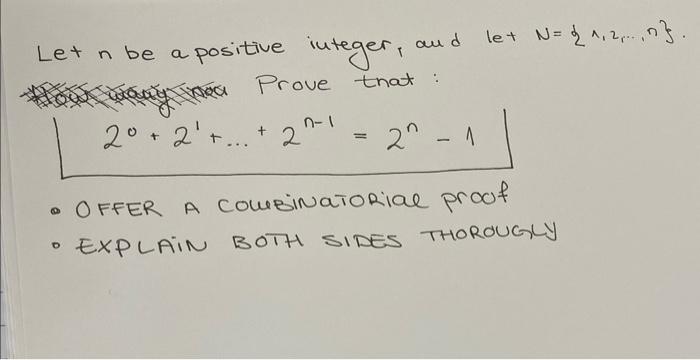 Let n be a positive integer, and let N= { 1, 2, ..., n}.
Prove that :
2⁰ + 2¹ + ... + 2ⁿ⁻¹ = 2ⁿ - 1
• OFFER A COMBINATORIAL proof
• EXPLAIN BOTH SIDES THOROUGLY